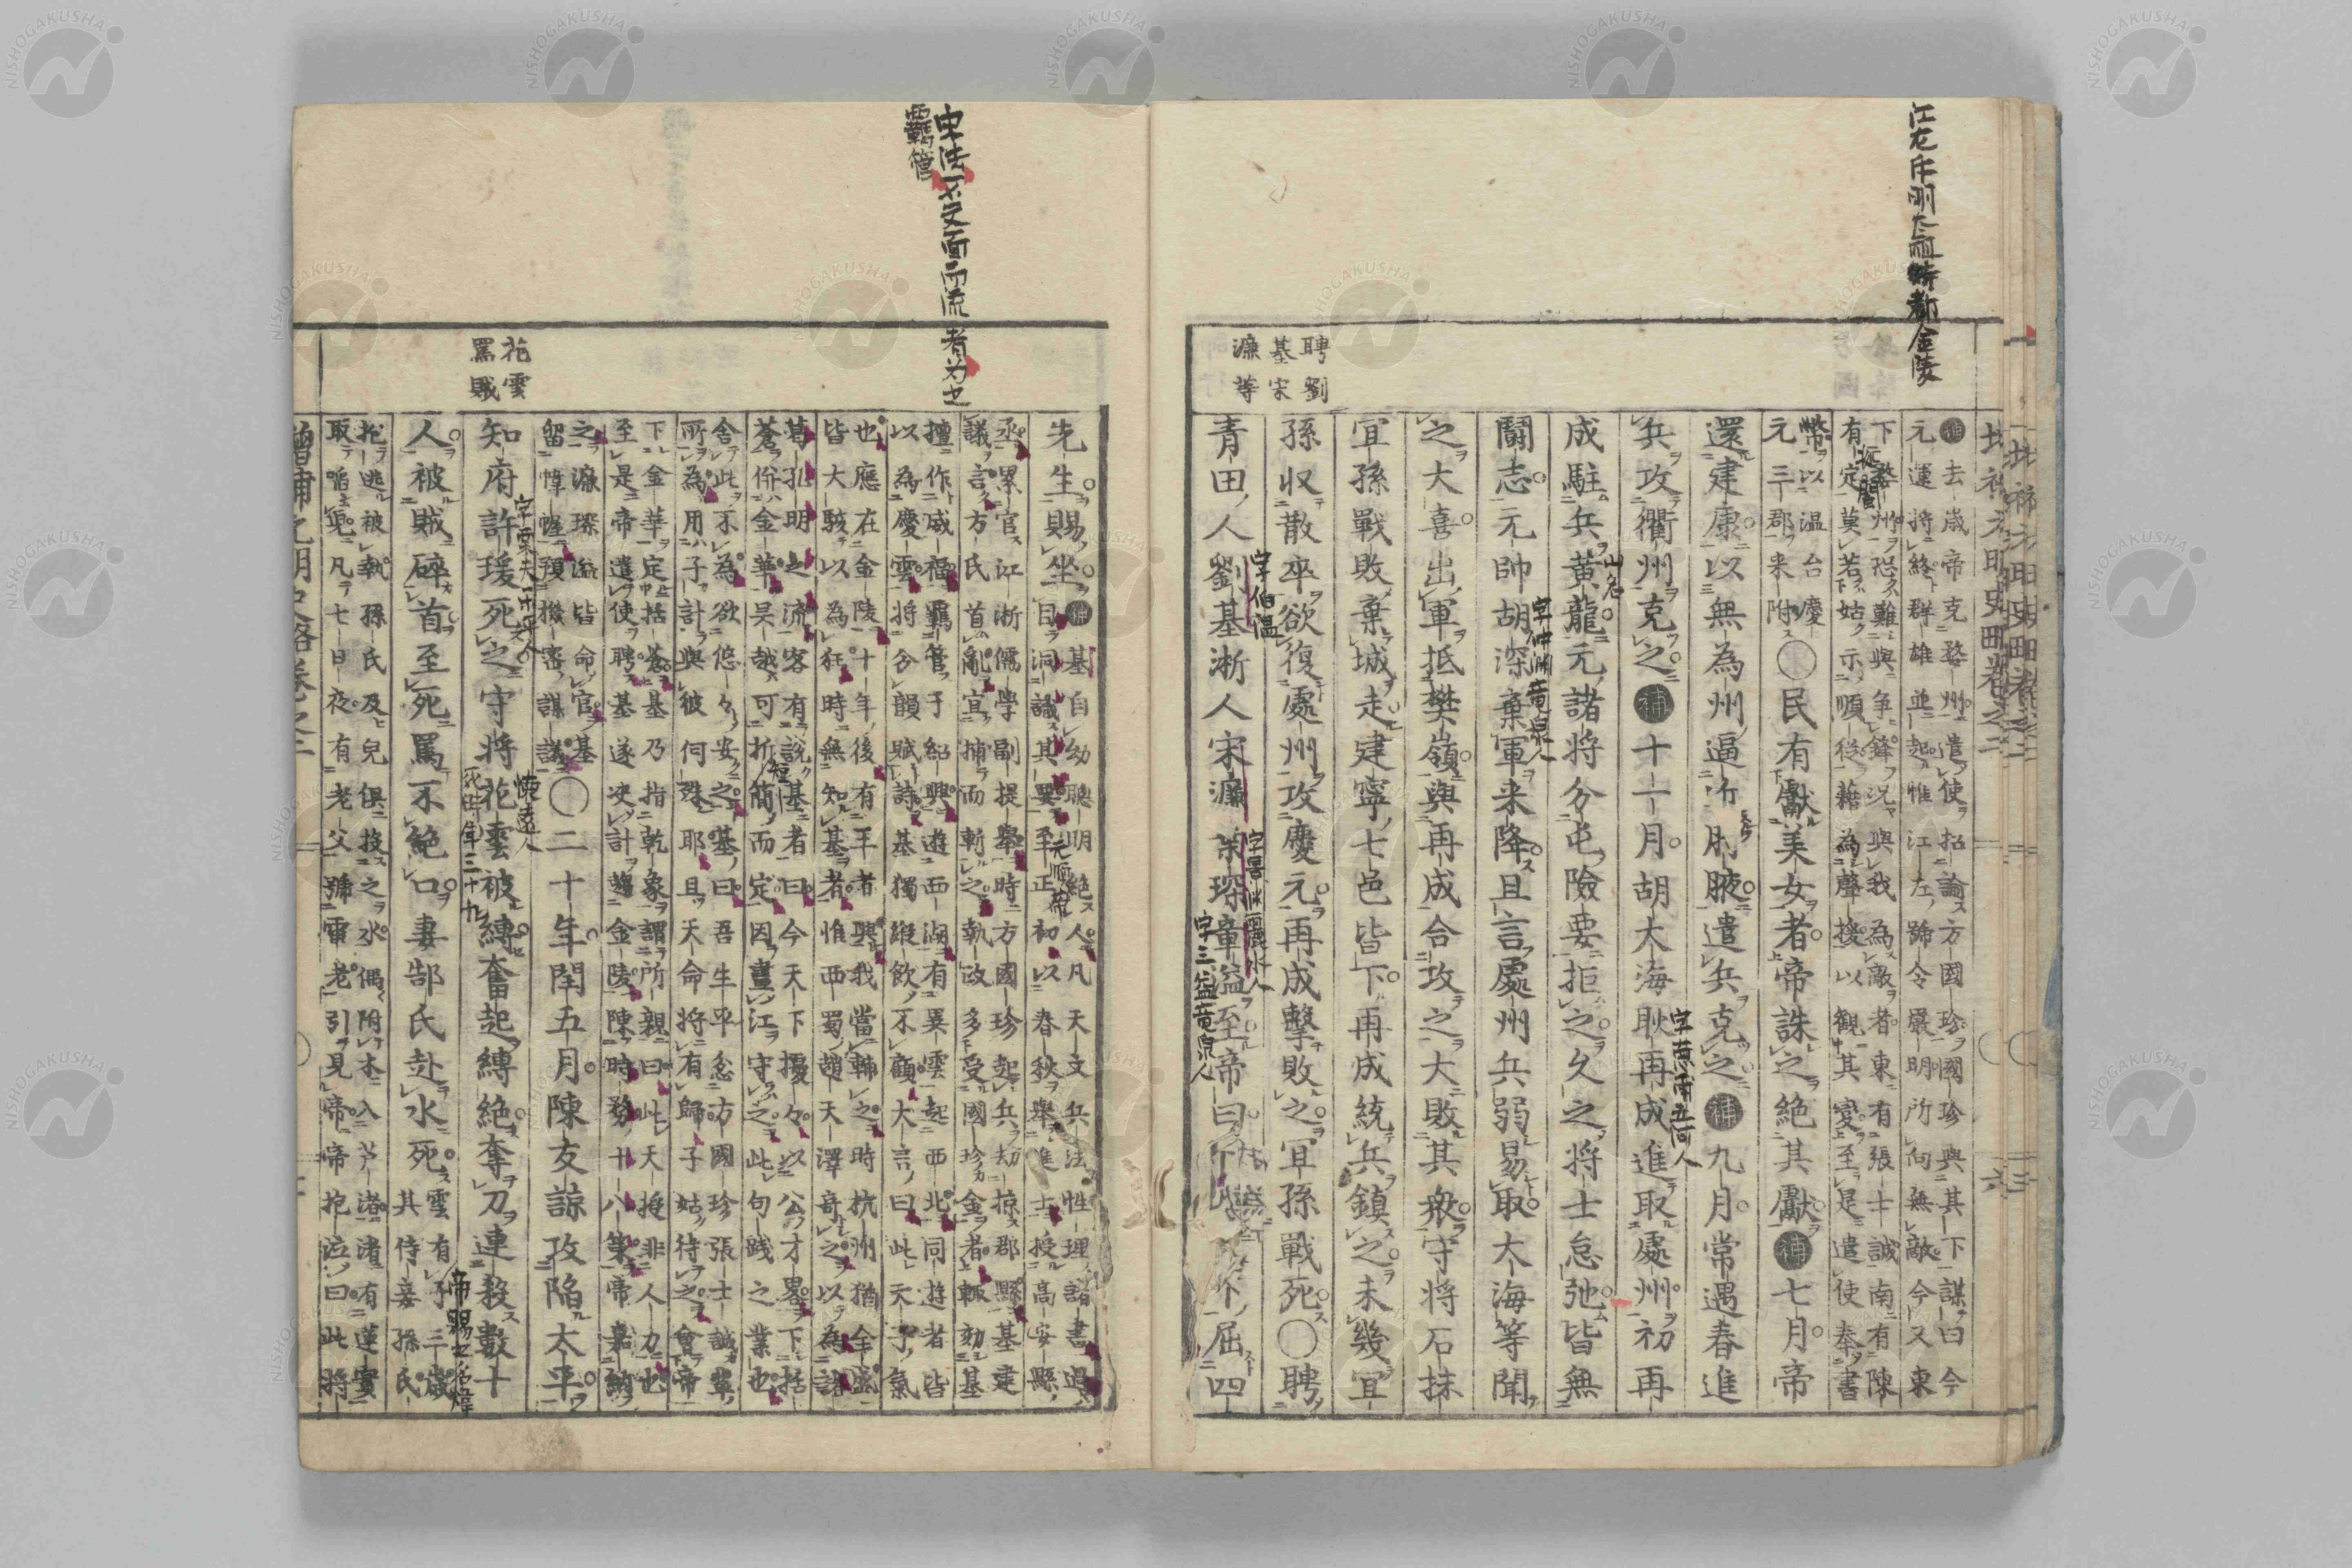 江左斥明太祖時都金陵
聘劉
基宋
濂等
補去歳帝克婺州遣使招諭方國珍國珍與其下謀曰今
元運將終群雄並起惟江左號令嚴明所向無敵今又東
下婺州恐難與争鋒況與我為敵者東有張士誠南有陳
有定莫若姑示順從藉為聲援以觀其變至是遣使奉書
幣以温台慶
元三郡来附〇民有獻美女者帝誅之絶其獻補七月帝
還建康以無為州逼近肘腋遣兵克之補九月常遇春進
兵攻衢州克之補十一月胡大海耿再成進取處州初再
成駐兵黄龍元諸将分屯險要拒之久之将士怠弛皆無
鬪志元帥胡深棄軍来降且言處州兵弱易取大海等聞
之大喜出軍抵樊嶺與再成合攻之大敗其衆守将石抹
冝孫戰敗棄城走建寧七邑皆下再成統兵鎮之未幾冝
孫収散卒欲復處州攻慶元再成擊敗之冝孫戰死〇聘
青田人劉基浙人宋濂葉琛章溢至帝曰屈四
山名
字仲淵竜泉人
字伯温
字景淵麗水人
字三益竜泉人
宋法一文面而流者為也
羈管
花雲
罵賊
先生賜坐補基自幼聰明絶人凡天文兵法性理諸書過
目洞識其異至正初以春秋舉進士授高安縣
丞累官江浙儒學副提舉時方國珍起兵刼掠郡縣基建
議言方氏首亂宜捕而斬之執政多受國珍金者輙劾基
擅作威福羈管于紹興遊西湖有異雲起西北同遊者皆
以為慶雲将分韻賦詩基獨縱飲不顧大言曰此天子氣
也應在金陵十年後有王者興我當輔之時杭州猶全盛
皆大駭以為狂時無知基者惟西蜀趙天澤竒之以為諸
葛孔明之流客有説基者曰今天下擾々以公才畧下括
蒼併金華呉越可折簡而定因畫江守之此句踐之業也
舎此不為欲悠々安之基曰吾生平忿方國珍張士誠輩
所為用子計與彼何殊耶且天命将有歸子姑待之會帝
下金華定括蒼基乃指乾象謂所親曰此天授非人力也
至是帝遣使聘基遂决計趨金陵陳時務十八策帝嘉納
之濂琛溢皆命官基
留幃幄預機密謀議〇二十年閏五月陳友諒攻陷太平
知府許瑗死之守将花雲被縛奮起縛絶奪刀連殺數十
人被賊碎首至死罵不絶口妻郜氏赴水死雲有子三歳
其侍妾孫氏
抱逃被執孫氏及兒倶投之水偶附木入芦渚渚有蓮實
取啗兒凡七日夜有老父號雷老引見帝帝抱泣曰此将
字栗夫
懐遠人
死時年三十九
帝賜之名煒